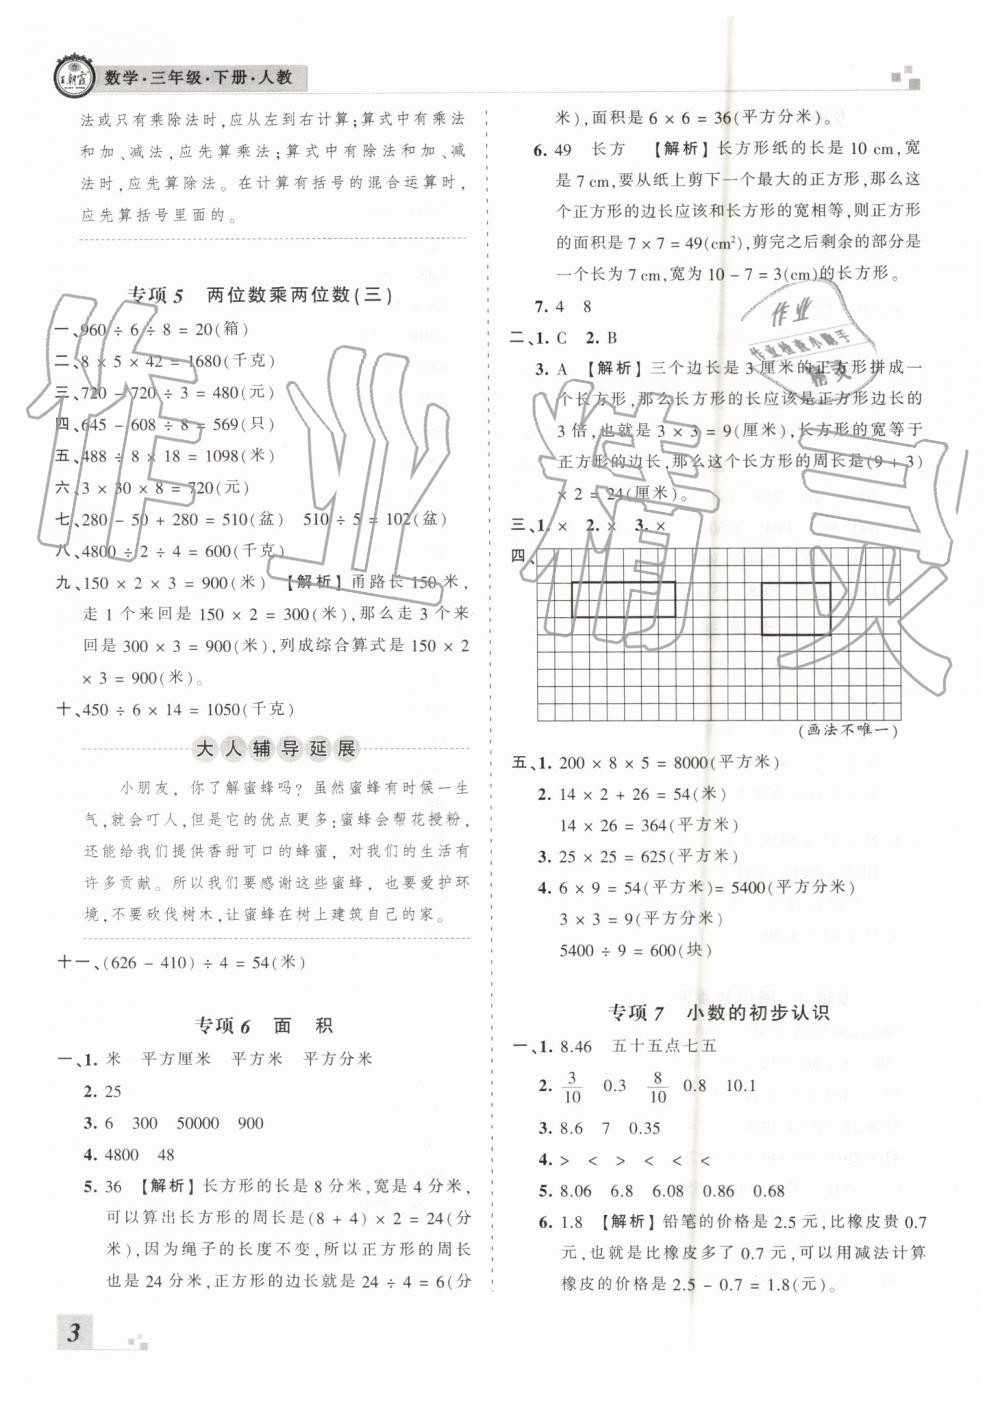 王朝霞
数学·三年级·下册·人教
法或只有乘除法时,应从左到右计算;算式中有乘法
和加、减法,应先算乘法;算式中有除法和加、减
法时,应先算除法。在计算有括号的混合运算时,
应先算括号里面的。
专项5 两位数乘两位数(三)
一、960 ÷ 6 ÷ 8 = 20(箱)
二、8 × 5 × 42 = 1680(千克)
三、720 - 720 ÷ 3 = 480(元)
四、645 - 608 ÷ 8 = 569(只)
五、488 ÷ 8 × 18 = 1098(米)
六、3 × 30 × 8 = 720(元)
七、280 - 50 + 280 = 510(盆) 510 ÷ 5 = 102(盆)
八、4800 ÷ 2 ÷ 4 = 600(千克)
九、150 × 2 × 3 = 900(米) 【解析】甬路长 150 米,
走 1 个来回是 150 × 2 = 300(米),那么走 3 个来
回是 300 × 3 = 900(米),列成综合算式是 150 × 2
× 3 = 900(米)。
十、450 ÷ 6 × 14 = 1050(千克)
大人辅导延展
小朋友,你了解蜜蜂吗?虽然蜜蜂有时候一生
气,就会叮人,但是它的优点更多:蜜蜂会帮花授粉,
还能给我们提供香甜可口的蜂蜜,对我们的生活有
许多贡献。所以我们要感谢这些蜜蜂,也要爱护环
境,不要砍伐树木,让蜜蜂在树上建筑自己的家。
十一、(626 - 410) ÷ 4 = 54(米)
专项6 面 积
一、1. 米 平方厘米 平方米 平方分米
2. 25
3. 6 300 50000 900
4. 4800 48
5. 36 【解析】长方形的长是 8 分米,宽是 4 分米,
可以算出长方形的周长是(8 + 4) × 2 = 24(分
米),因为绳子的长度不变,所以正方形的周长
也是 24 分米,正方形的边长就是 24 ÷ 4 = 6(分
3
米),面积是 6 × 6 = 36(平方分米)。
6. 49 长方 【解析】长方形纸的长是 10 cm,宽
是 7 cm,要从纸上剪下一个最大的正方形,那么这
个正方形的边长应该和长方形的宽相等,则正方形
的面积是 7 × 7 = 49(cm²),剪完之后剩余的部分是
一个长为 7 cm,宽为 10 - 7 = 3(cm)的长方形。
7. 4 8
二、1. C 2. B
3. A 【解析】三个边长是 3 厘米的正方形拼成一
个长方形,那么长方形的长应该是正方形边长的
3 倍,也就是 3 × 3 = 9(厘米),长方形的宽等于
正方形的边长,那么这个长方形的周长是(9 + 3)
× 2 = 24(厘米)。
三、1. × 2. × 3. ×
四、
(画法不唯一)
五、1. 200 × 8 × 5 = 8000(平方米)
2. 14 × 2 + 26 = 54(米)
14 × 26 = 364(平方米)
3. 25 × 25 = 625(平方米)
4. 6 × 9 = 54(平方米) = 5400(平方分米)
3 × 3 = 9(平方分米)
5400 ÷ 9 = 600(块)
专项7 小数的初步认识
一、1. 8.46 五十五点七五
2. 3/10 0.3 8/10 0.8 10.1
3. 8.6 7 0.35
4. > < > < < <
5. 8.06 6.8 6.08 0.86 0.68
6. 1.8 【解析】铅笔的价格是 2.5 元,比橡皮贵 0.7
元,也就是比橡皮多了 0.7 元,可以用减法计算
橡皮的价格是 2.5 - 0.7 = 1.8(元)。
作业精灵
作业
作业检查小帮手
精灵